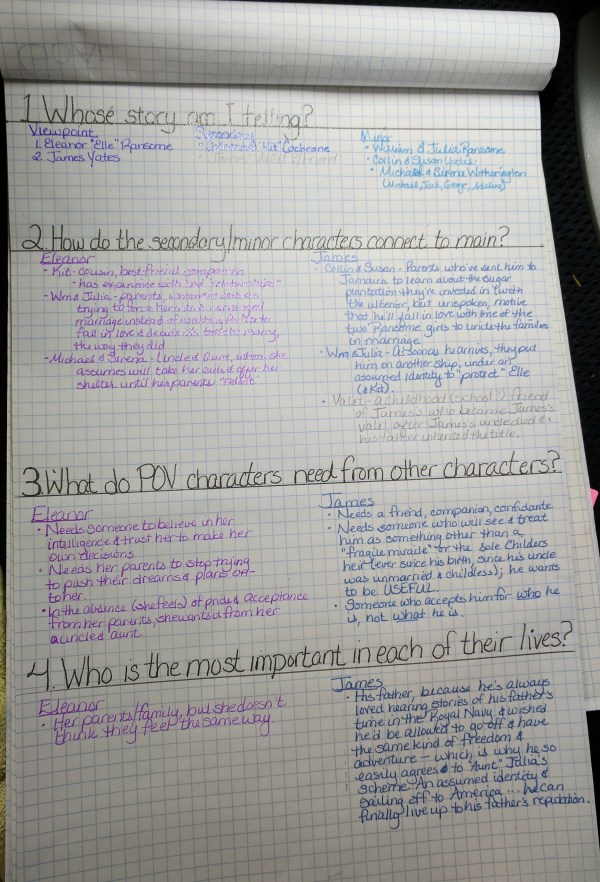 1. Whose story am I telling?
Viewpoint
1. Eleanor "Elle" Ransome
2. James Yates
Secondary
"Kit" Cochrane
Minor
• William & Julia Ransome
• Collin & Susan Yates
• Michael & Serena Witherington
(Michael, Jack, George, Adeline)
2. How do the secondary/minor characters connect to main?
Eleanor
• Kit - cousin, best friend, companion
- has experience with and "relationships"
• Wm & Julia - parents, whom she sees as
trying to force her into an arranged
marriage instead of for her to
fall in love & decide to marry,
the way they did
• Michael & Serena - Uncle & Aunt, whom she
assumes will take her side & offer her
shelter until her parents "relent"
James
• Collin & Susan - Parents who've sent him to
Jamaica to learn about the sugar
plantation they're invested in with
the ulterior, but unspoken, motive
that he'll fall in love with one of the
two Ransome girls to unite the families
in marriage
• Wm & Julia - As soon as he arrives, they put
him on another ship, under an
assumed identity to "protect" Elle
(& Kit).
• Valet - a childhood (school?) friend
of James's who became James's
valet after James's uncle died &
his father inherited the title.
3. What do POV characters need from other characters?
Eleanor
• Needs someone to believe in her
intelligence & trust her to make her
own decisions
• Needs her parents to stop trying
to push their dreams & plans on-
to her.
• In the absence (she feels) of pride & acceptance
from her parents, she wants it from her
aunt
James
• Needs a friend, companion, confidante
• Needs someone who will see & treat
him as something other than a
"fragile miracle" or the sole Childers
heir (ever since his birth, since his uncle
was unmarried & childless); he wants
to be USEFUL.
• Someone who accepts him for who he
is, not what he is.
4. Who is the most important in each of their lives?
Eleanor
• Her parents/family, but she doesn't
think they feel the same way.
James
• His father, because he's always
loved hearing stories of his father's
time in the Royal Navy & wished
he'd be allowed to go off & have
the same kind of freedom &
adventure — which is why he so
easily agrees to "Aunt" Julia's
scheme. An assumed identity &
sailing off to America ... he can
finally live up to his father's reputation.